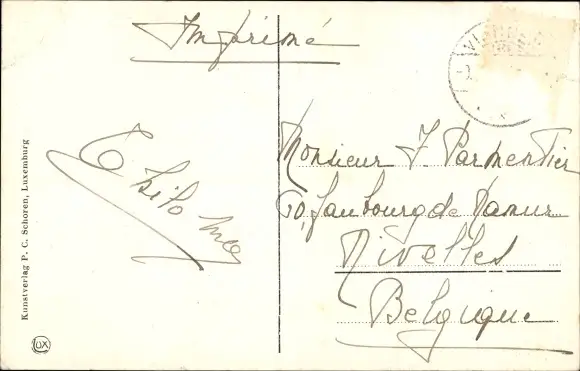 Imprimé
Monsieur J. Parmentier
60, faubourg de Namur
Nivelles
Belgique
Kunstverlag P. C. Schoren, Luxemburg